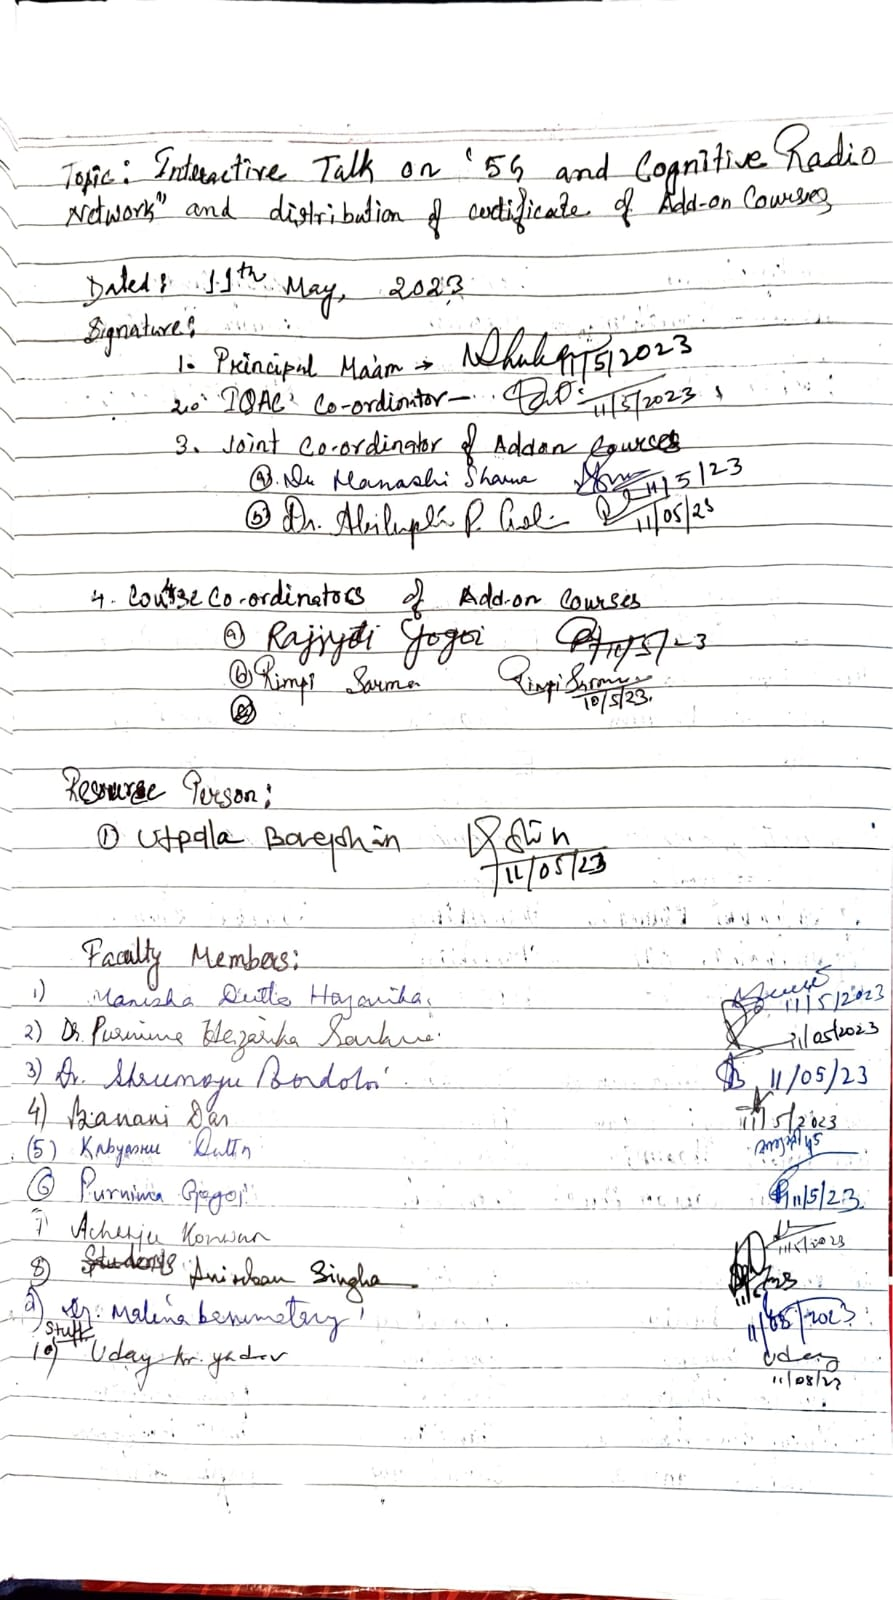 Topic: Interactive Talk on '5G and Cognitive Radio
Network" and distribution of certificate of Add-on Courses
Dated: 11th May, 2023
Signature:
1. Principal Maam → 11/5/2023
2. IQAC Co-ordiontor - 11/5/2023
3. Joint Co-ordinator of Addon Courses
(a) Dr Manashi Sharma 11/5/23
(b) Dr. P. 11/05/23
4. Course Co-ordinators of Add-on Courses
(a) Rajjyoti Gogoi
(b) Rimpi Sarma Rimpi Sarma 10/5/23.
Resource Person:
① Utpala Borgohain 11/05/23
Faculty Members:
1) Manisha Dutta Hazarika, 11/5/2023
2) Dr. Purnima Hazarika 11/05/2023
3) Dr. Bordoloi 11/05/23
4) Banani Das 11/5/2023
(5) Kabyashree Dutta
⑥ Purnima Gogoi 11/5/23
7 Konwar 11/5/2023
8) Anirban Singha
9) Dr. Malina
Staff
10) Uday kr. yadav Uday